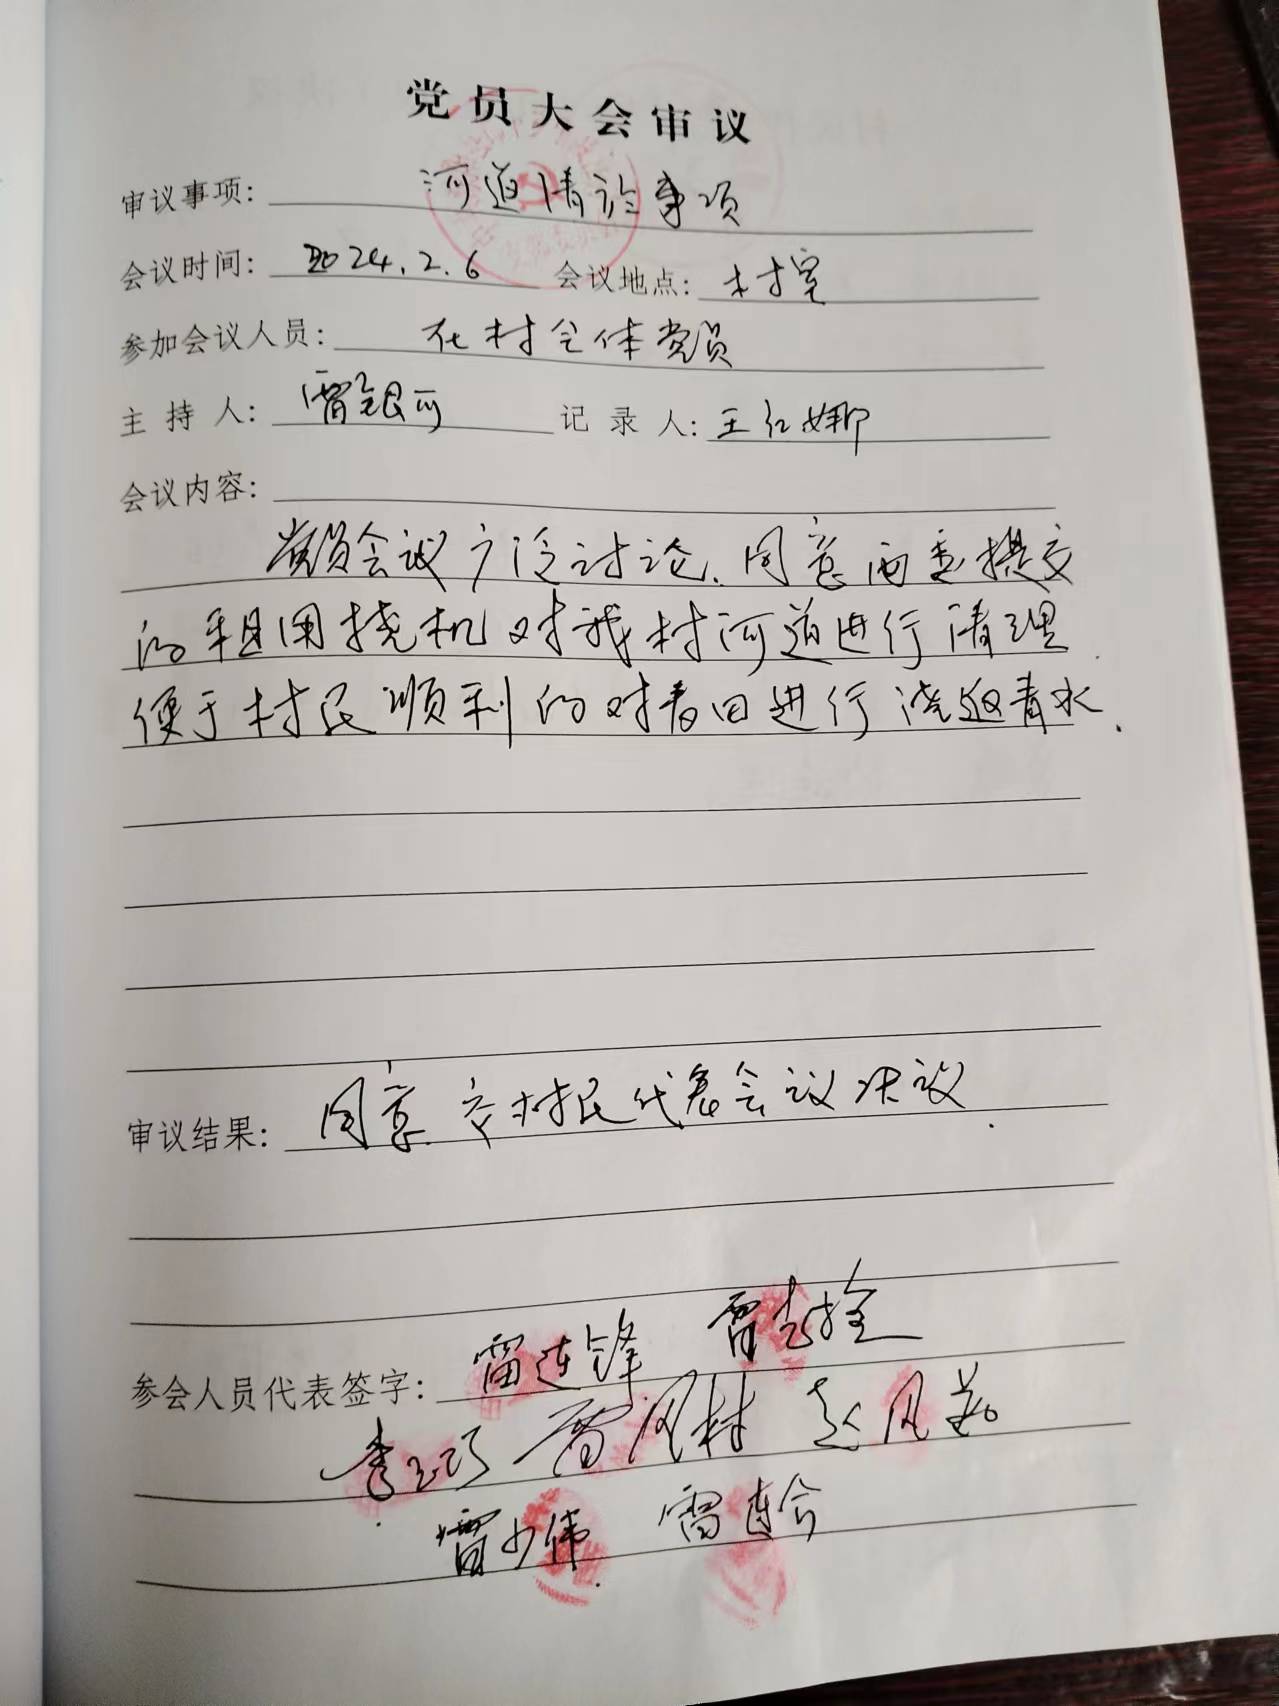 党员大会审议
审议事项: 河道清淤事项
会议时间: 2024.2.6 会议地点: 村室
参加会议人员: 在村全体党员
主持人: 雷银河 记录人: 王红娜
会议内容:
党员会议广泛讨论、同意两委提交
的租用挠机对我村河道进行清理.
便于村民顺利的对春田进行浇返青水.
审议结果: 同意.交村民代表会议决议.
参会人员代表签字: 雷连锋 雷志拴
李巧 雷风村 赵凡
雷少伟 雷连合